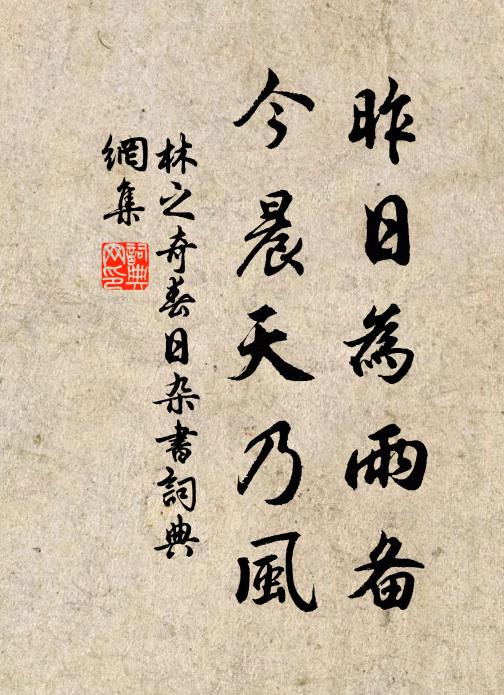 昨日為雨备
今晨天乃風
林之奇春日杂書詞典
網集
詞典
网印